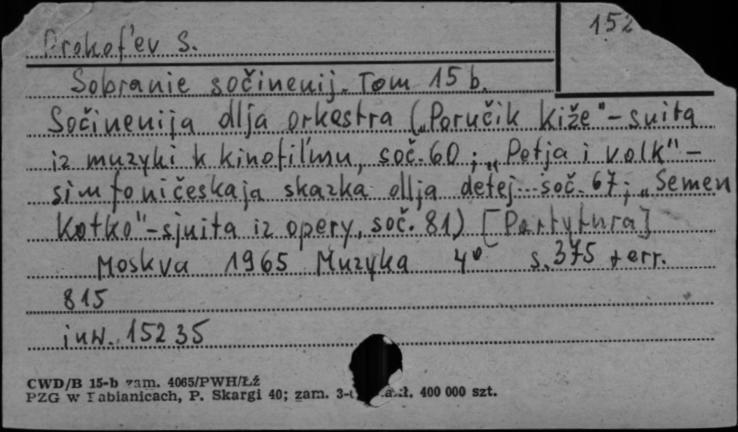 152
Prokof'ev S.
Sobranie sočinenij. Tom 15 b.
Sočinenija dlja orkestra („Poručik Kiže"-suita
iz muzyki k kinofil'mu, soč. 60; „Petja i volk"-
simfoničeskaja skazka dlja detej soč. 67; „Semen
Kotko"-sjuita iz opery, soč. 81) [Partytura]
Moskva 1965 Muzyka 4° s. 375 + err.
815
inw. 15235
CWD/B 15-b zam. 4065/PWH/Łź
PZG w Pabianicach, P. Skargi 40; zam. 400 000 szt.